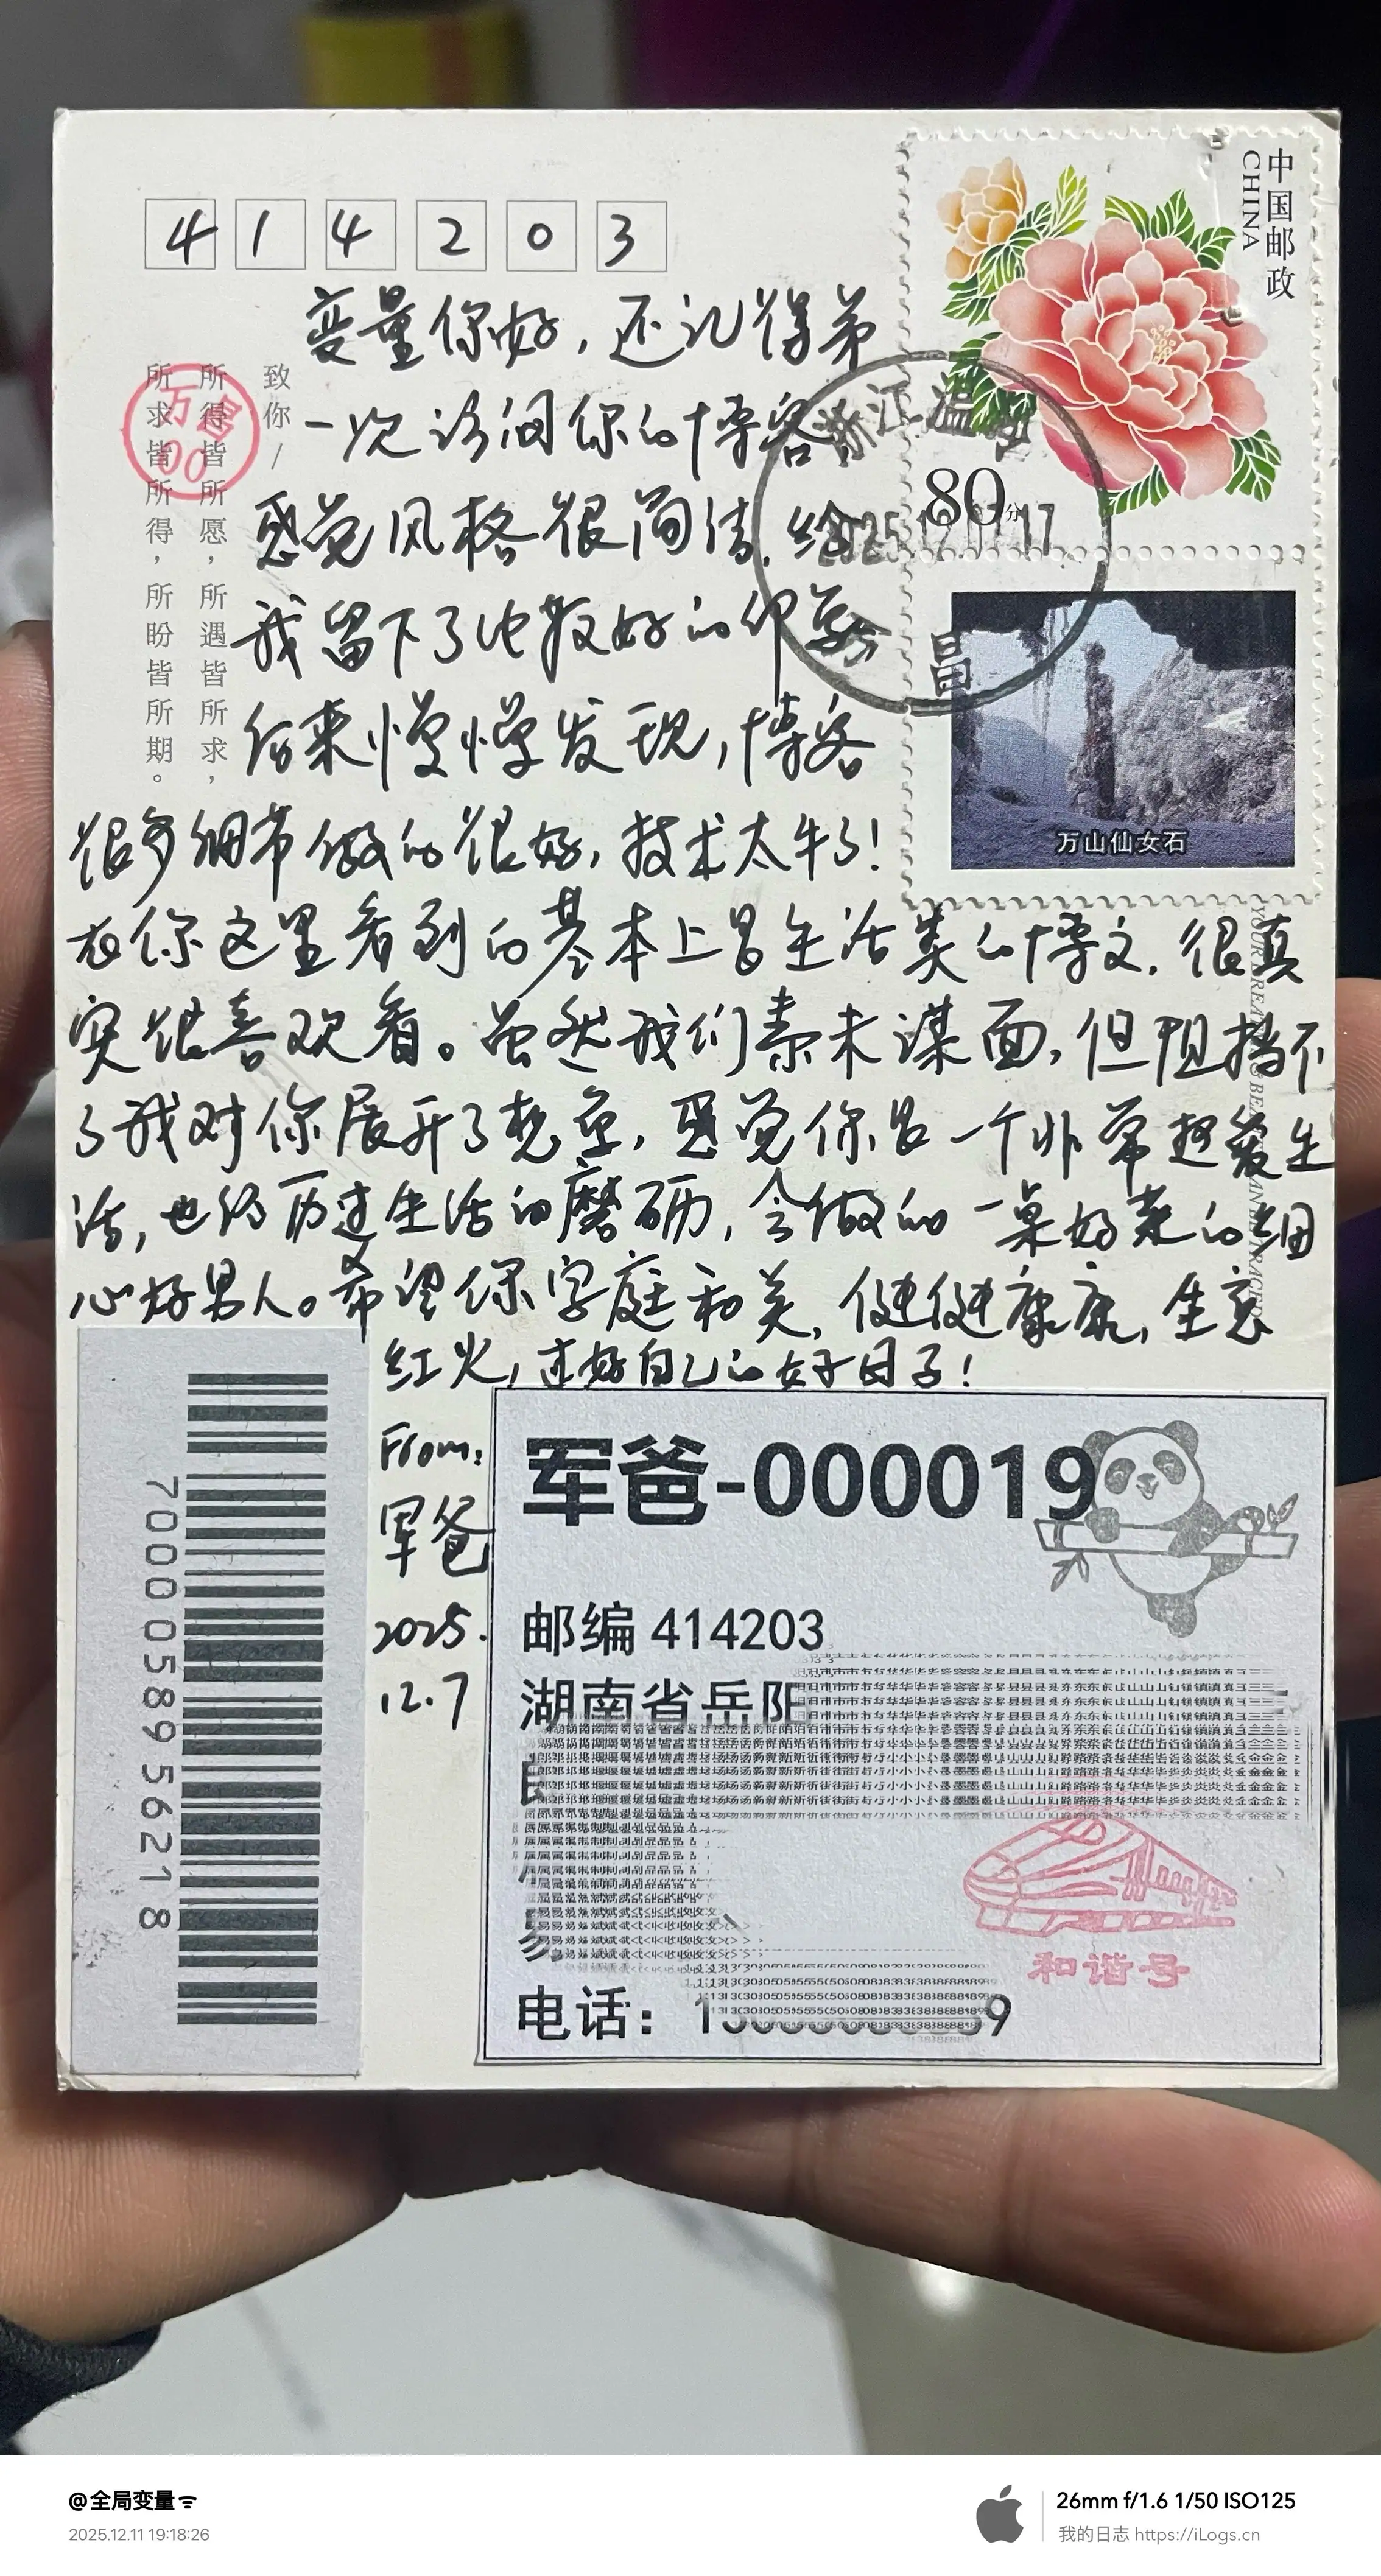 414203
中国邮政
CHINA
80分
万山仙女石
致你/
所得皆所愿，所遇皆所求，
所求皆所得，所盼皆所期。
变量你好，还记得第
一次访问你的博客
感觉风格很简洁，给
我留下了比较好的印象
后来慢慢发现，博客
很多细节做的很好，技术太牛了！
在你这里看到的基本上是生活类的博文，很真
实很喜欢看。虽然我们素未谋面，但阻挡不
了我对你展开了想象，感觉你是一个非常热爱生
活，也经历过生活的磨砺，会做的一桌好菜的细
心好男人。希望你家庭和美，健健康康，生意
红火，过好自己的好日子！
From:
军爸
2025.
12.7
7000058956218
军爸-000019
邮编 414203
湖南省岳阳
电话：1
9
和谐号
@全局变量
2025.12.11 19:18:26
26mm f/1.6 1/50 ISO125
我的日志 https://iLogs.cn